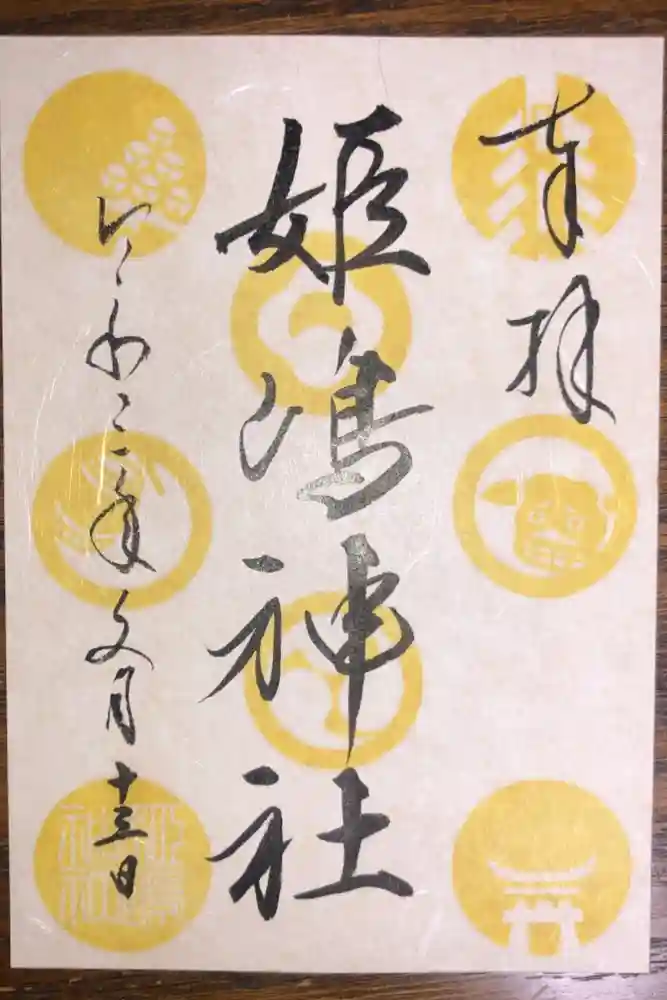 奉拝
姫嶋神社
令和二年文月十三日